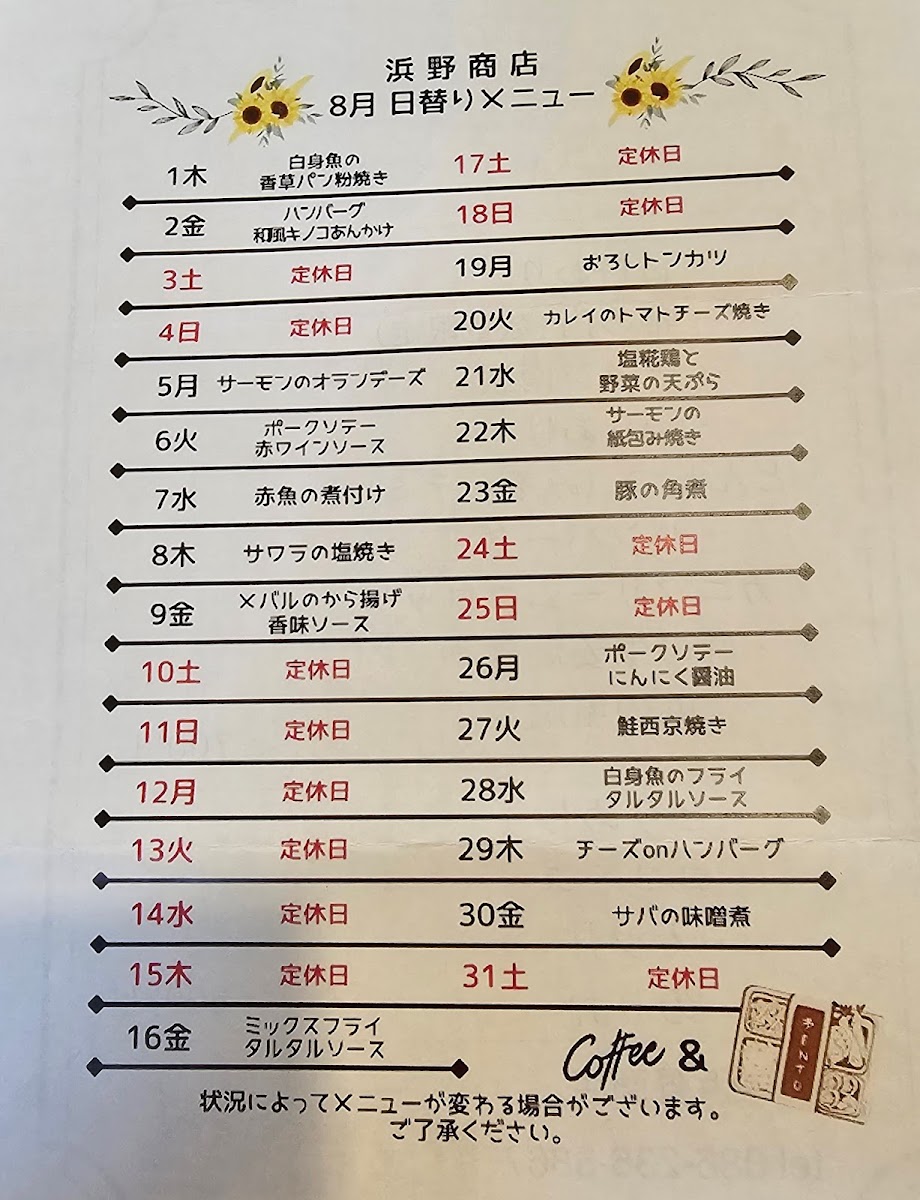 浜野商店
8月 日替りメニュー
1木
白身魚の
香草パン粉焼き
2金
ハンバーグ
和風キノコあんかけ
3土 定休日
4日 定休日
5月 サーモンのオランデーズ
6火
ポークソテー
赤ワインソース
7水 赤魚の煮付け
8木 サワラの塩焼き
9金
メバルのから揚げ
香味ソース
10土 定休日
11日 定休日
12月 定休日
13火 定休日
14水 定休日
15木 定休日
16金
ミックスフライ
タルタルソース
17土 定休日
18日 定休日
19月 おろしトンカツ
20火 カレイのトマトチーズ焼き
21水
塩糀鶏と
野菜の天ぷら
22木
サーモンの
紙包み焼き
23金 豚の角煮
24土 定休日
25日 定休日
26月
ポークソテー
にんにく醤油
27火 鮭西京焼き
28水
白身魚のフライ
タルタルソース
29木 チーズonハンバーグ
30金 サバの味噌煮
31土 定休日
Coffee &
BENTO
状況によってメニューが変わる場合がございます。
ご了承ください。